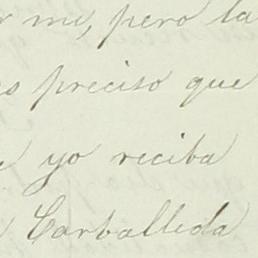 r mi, pero la
es preciso que
e yo reciba
Carballeda